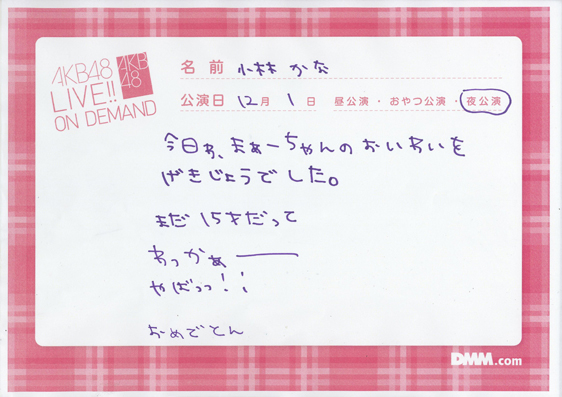 AKB48
LIVE!!
ON DEMAND
AKB
48
名前 小林 かな
公演日 12月 1日 昼公演・おやつ公演・夜公演
今日わ、まぁーちゃんのおいわいを
げきじょうでした。
まだ 15才だって
わっかぁー
やばっっ!!
おめでとん
DMM.com